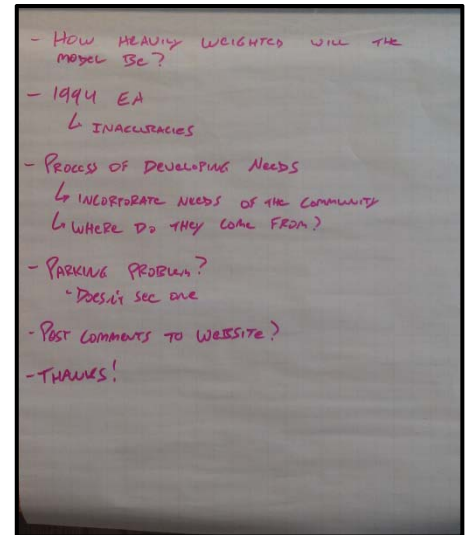 - HOW HEAVILY WEIGHTED WILL THE
MODEL BE?
- 1994 EA
↳ INACCURACIES
- PROCESS OF DEVELOPING NEEDS
↳ INCORPORATE NEEDS OF THE COMMUNITY
↳ WHERE DO THEY COME FROM?
- PARKING PROBLEM?
- DOESN'T SEE ONE
- POST COMMENTS TO WEBSITE?
- THANKS!